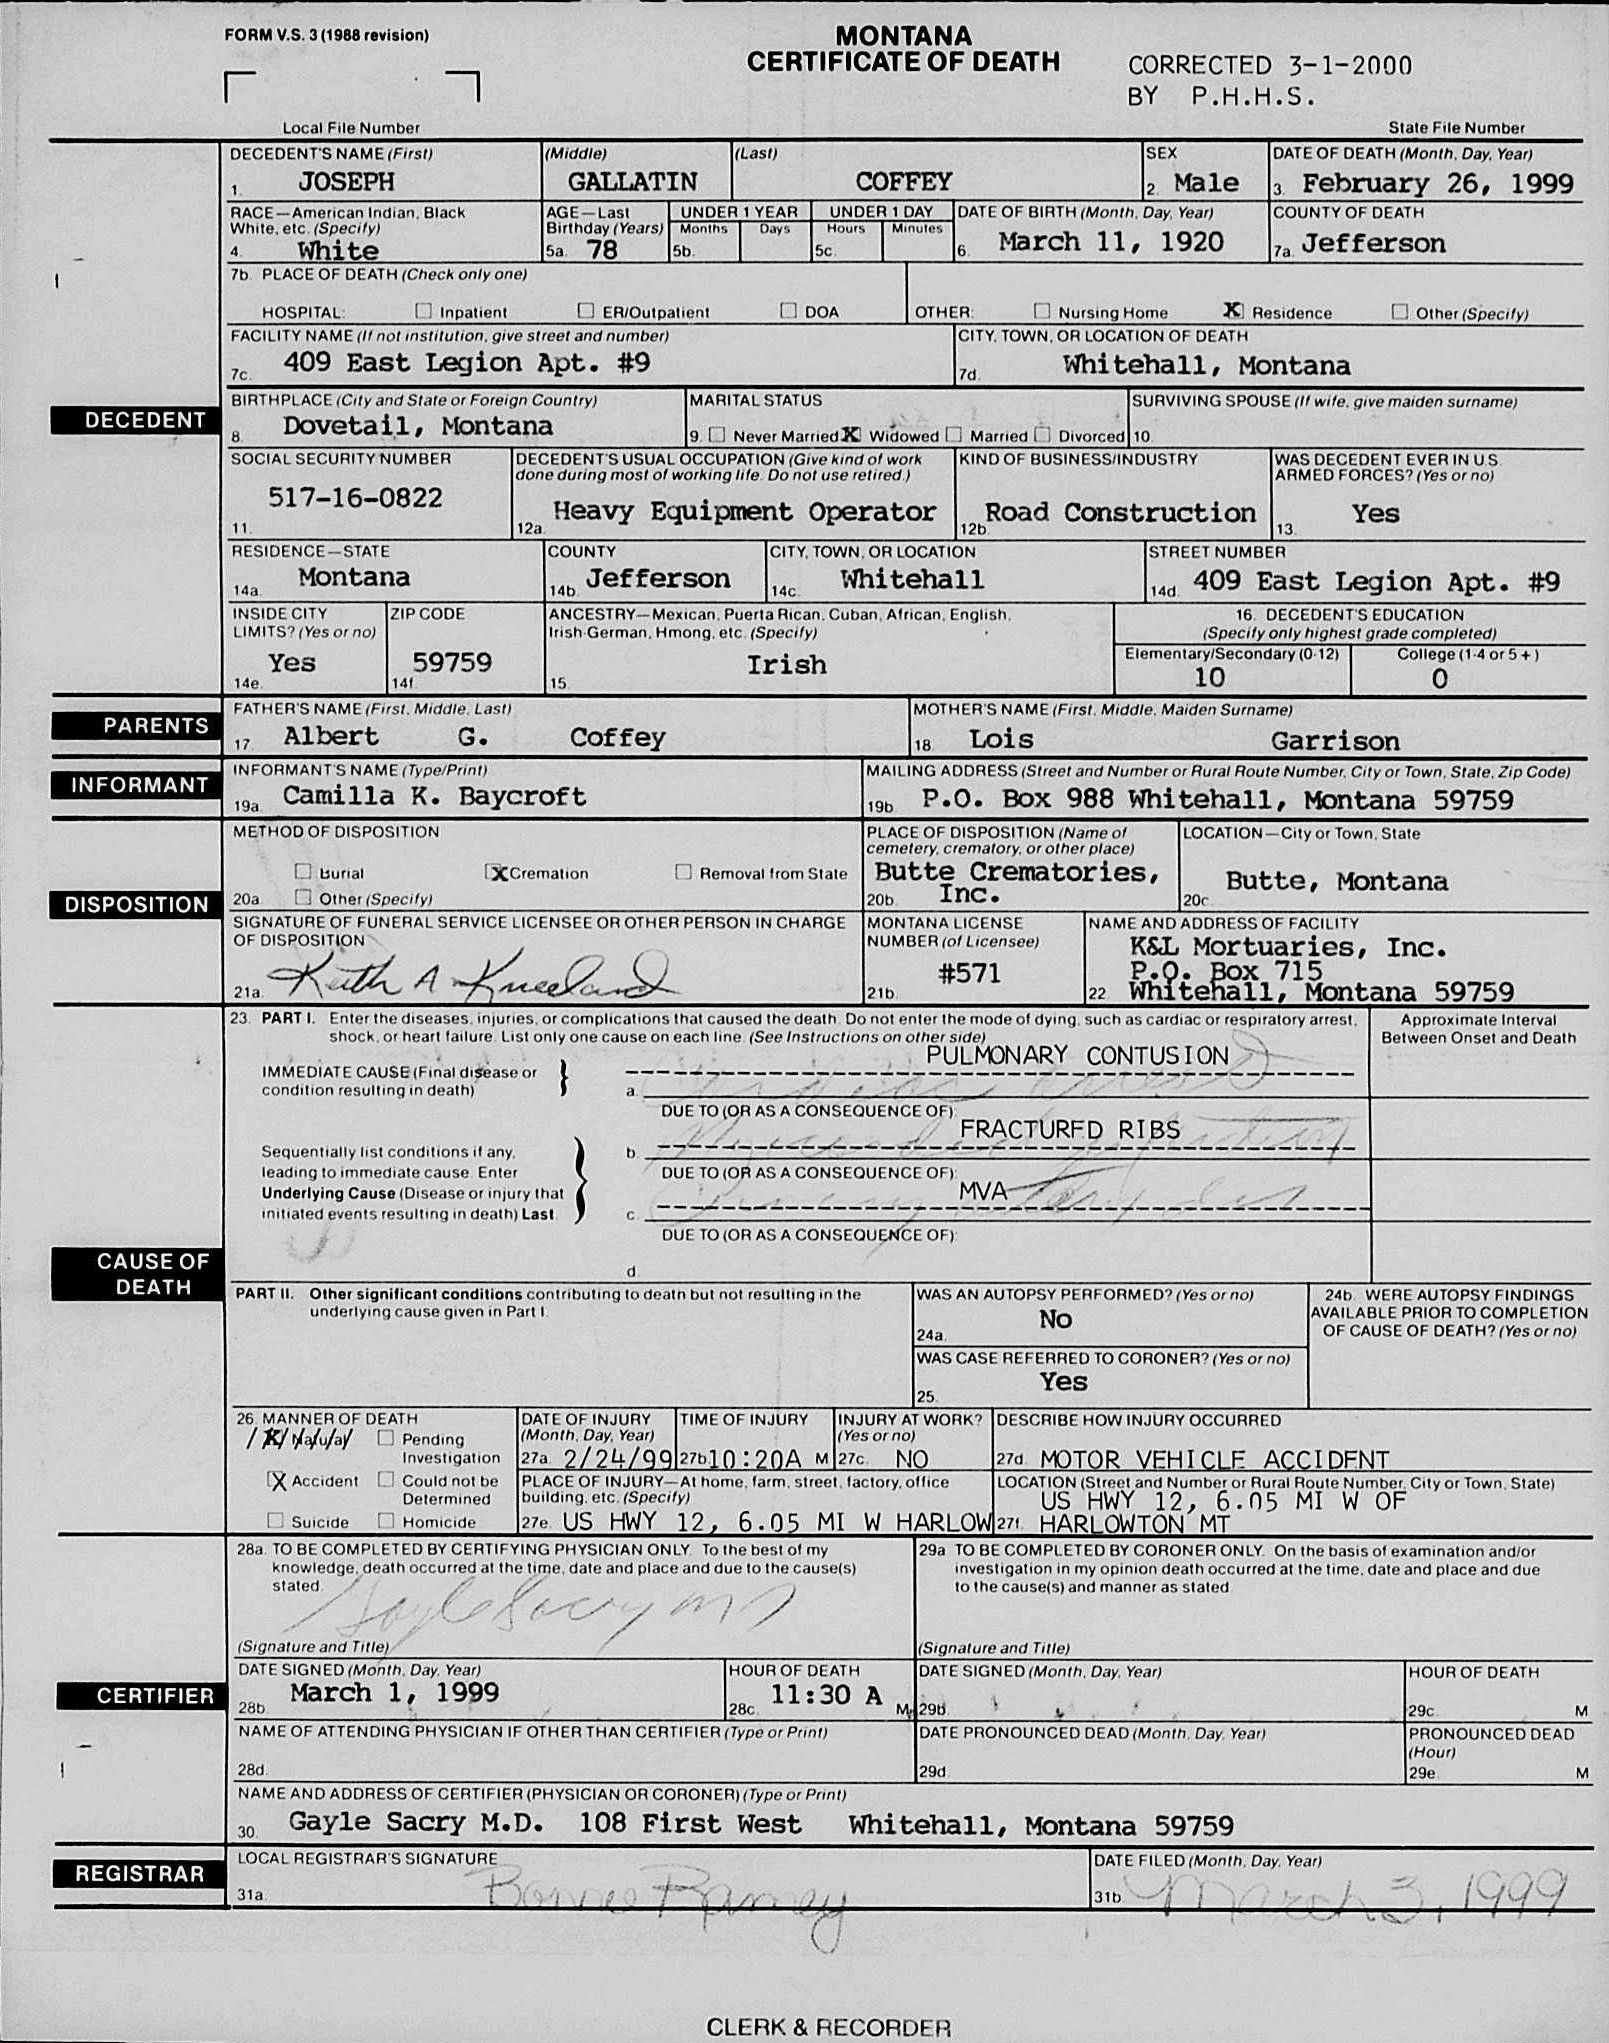 FORM V.S. 3 (1988 revision)
MONTANA
CERTIFICATE OF DEATH
CORRECTED 3-1-2000
BY P.H.H.S.
Local File Number
State File Number
DECEDENT'S NAME (First) (Middle) (Last) SEX DATE OF DEATH (Month, Day, Year)
1. JOSEPH GALLATIN COFFEY 2. Male 3. February 26, 1999
RACE—American Indian, Black AGE—Last UNDER 1 YEAR UNDER 1 DAY DATE OF BIRTH (Month, Day, Year) COUNTY OF DEATH
White, etc. (Specify) Birthday (Years) Months Days Hours Minutes
4. White 5a. 78 5b. 5c. 6. March 11, 1920 7a. Jefferson
7b. PLACE OF DEATH (Check only one)
HOSPITAL: Inpatient ER/Outpatient DOA OTHER: Nursing Home X Residence Other (Specify)
FACILITY NAME (If not institution, give street and number) CITY, TOWN, OR LOCATION OF DEATH
7c. 409 East Legion Apt. #9 7d. Whitehall, Montana
DECEDENT
BIRTHPLACE (City and State or Foreign Country) MARITAL STATUS SURVIVING SPOUSE (If wife, give maiden surname)
8. Dovetail, Montana 9. Never Married X Widowed Married Divorced 10.
SOCIAL SECURITY NUMBER DECEDENT'S USUAL OCCUPATION (Give kind of work KIND OF BUSINESS/INDUSTRY WAS DECEDENT EVER IN U.S.
done during most of working life. Do not use retired.) ARMED FORCES? (Yes or no)
11. 517-16-0822 12a. Heavy Equipment Operator 12b. Road Construction 13. Yes
RESIDENCE—STATE COUNTY CITY, TOWN, OR LOCATION STREET NUMBER
14a. Montana 14b. Jefferson 14c. Whitehall 14d. 409 East Legion Apt. #9
INSIDE CITY ZIP CODE ANCESTRY—Mexican, Puerta Rican, Cuban, African, English, 16. DECEDENT'S EDUCATION
LIMITS? (Yes or no) Irish-German, Hmong, etc. (Specify) (Specify only highest grade completed)
Elementary/Secondary (0-12) College (1-4 or 5+)
14e. Yes 14f. 59759 15. Irish 10 0
PARENTS
FATHER'S NAME (First, Middle, Last) MOTHER'S NAME (First, Middle, Maiden Surname)
17. Albert G. Coffey 18. Lois Garrison
INFORMANT
INFORMANT'S NAME (Type/Print) MAILING ADDRESS (Street and Number or Rural Route Number, City or Town, State, Zip Code)
19a. Camilla K. Baycroft 19b. P.O. Box 988 Whitehall, Montana 59759
DISPOSITION
METHOD OF DISPOSITION PLACE OF DISPOSITION (Name of LOCATION—City or Town, State
cemetery, crematory, or other place)
Burial X Cremation Removal from State Butte Crematories, Butte, Montana
20a. Other (Specify) 20b. Inc. 20c.
SIGNATURE OF FUNERAL SERVICE LICENSEE OR OTHER PERSON IN CHARGE MONTANA LICENSE NAME AND ADDRESS OF FACILITY
OF DISPOSITION NUMBER (of Licensee) K&L Mortuaries, Inc.
21a. Keith A Kneeland 21b. #571 P.O. Box 715
22. Whitehall, Montana 59759
CAUSE OF
DEATH
23. PART I. Enter the diseases, injuries, or complications that caused the death. Do not enter the mode of dying, such as cardiac or respiratory arrest, Approximate Interval
shock, or heart failure. List only one cause on each line. (See Instructions on other side) Between Onset and Death
IMMEDIATE CAUSE (Final disease or PULMONARY CONTUSION
condition resulting in death) a.
DUE TO (OR AS A CONSEQUENCE OF):
FRACTURFD RIBS
Sequentially list conditions if any, b.
leading to immediate cause. Enter DUE TO (OR AS A CONSEQUENCE OF):
Underlying Cause (Disease or injury that MVA
initiated events resulting in death) Last. c.
DUE TO (OR AS A CONSEQUENCE OF):
d.
PART II. Other significant conditions contributing to death but not resulting in the WAS AN AUTOPSY PERFORMED? (Yes or no) 24b. WERE AUTOPSY FINDINGS
underlying cause given in Part I. 24a. No AVAILABLE PRIOR TO COMPLETION
OF CAUSE OF DEATH? (Yes or no)
WAS CASE REFERRED TO CORONER? (Yes or no)
25. Yes
26. MANNER OF DEATH DATE OF INJURY TIME OF INJURY INJURY AT WORK? DESCRIBE HOW INJURY OCCURRED
X Natural Pending (Month, Day, Year) (Yes or no)
Investigation 27a. 2/24/99 27b. 10:20A M 27c. NO 27d. MOTOR VEHICLE ACCIDFNT
X Accident Could not be PLACE OF INJURY—At home, farm, street, factory, office LOCATION (Street and Number or Rural Route Number, City or Town, State)
Determined building, etc. (Specify) US HWY 12, 6.05 MI W OF
Suicide Homicide 27e. US HWY 12, 6.05 MI W HARLOW 27f. HARLOWTON MT
CERTIFIER
28a. TO BE COMPLETED BY CERTIFYING PHYSICIAN ONLY. To the best of my 29a. TO BE COMPLETED BY CORONER ONLY. On the basis of examination and/or
knowledge, death occurred at the time, date and place and due to the cause(s) investigation in my opinion death occurred at the time, date and place and due
stated. to the cause(s) and manner as stated.
Gayle Sacry MD
(Signature and Title) (Signature and Title)
DATE SIGNED (Month, Day, Year) HOUR OF DEATH DATE SIGNED (Month, Day, Year) HOUR OF DEATH
28b. March 1, 1999 28c. 11:30 A M 29b. 29c. M
NAME OF ATTENDING PHYSICIAN IF OTHER THAN CERTIFIER (Type or Print) DATE PRONOUNCED DEAD (Month, Day, Year) PRONOUNCED DEAD
(Hour)
28d. 29d. 29e. M
NAME AND ADDRESS OF CERTIFIER (PHYSICIAN OR CORONER) (Type or Print)
30. Gayle Sacry M.D. 108 First West Whitehall, Montana 59759
REGISTRAR
LOCAL REGISTRAR'S SIGNATURE DATE FILED (Month, Day, Year)
31a. Bonnie Ramey 31b. March 3, 1999
CLERK & RECORDER